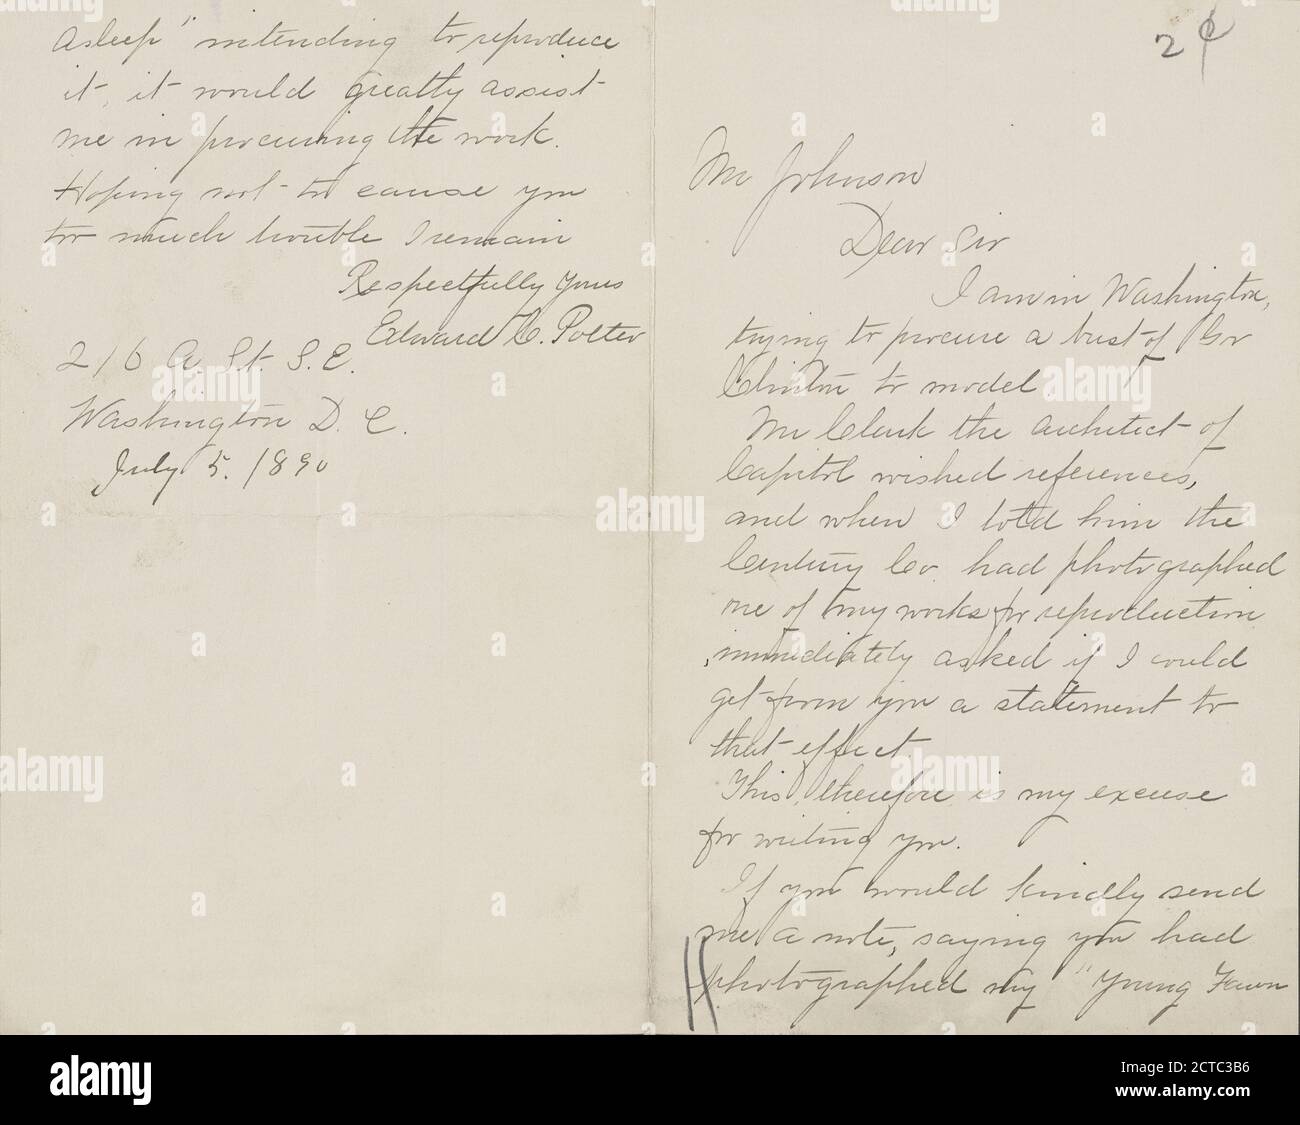 2 ¢
Mr Johnson
Dear Sir
I am in Washington,
trying to procure a bust of Gov
Clinton to model.
Mr Clark the architect of
Capitol wished references,
and when I told him the
Century Co. had photographed
one of my works for reproduction
immediately asked if I could
get from you a statement to
that effect
This, therefore is my excuse
for writing you.
If you would kindly send
me a note, saying you had
photographed my "Young Fawn
Asleep" intending to reproduce
it, it would greatly assist
me in procuring the work.
Hoping not to cause you
too much trouble I remain
Respectfully Yours
Edward C. Potter
216 A. St. S. E.
Washington D. C.
July 5. 1890
alamy
Image ID: 2CTC3B6
www.alamy.com